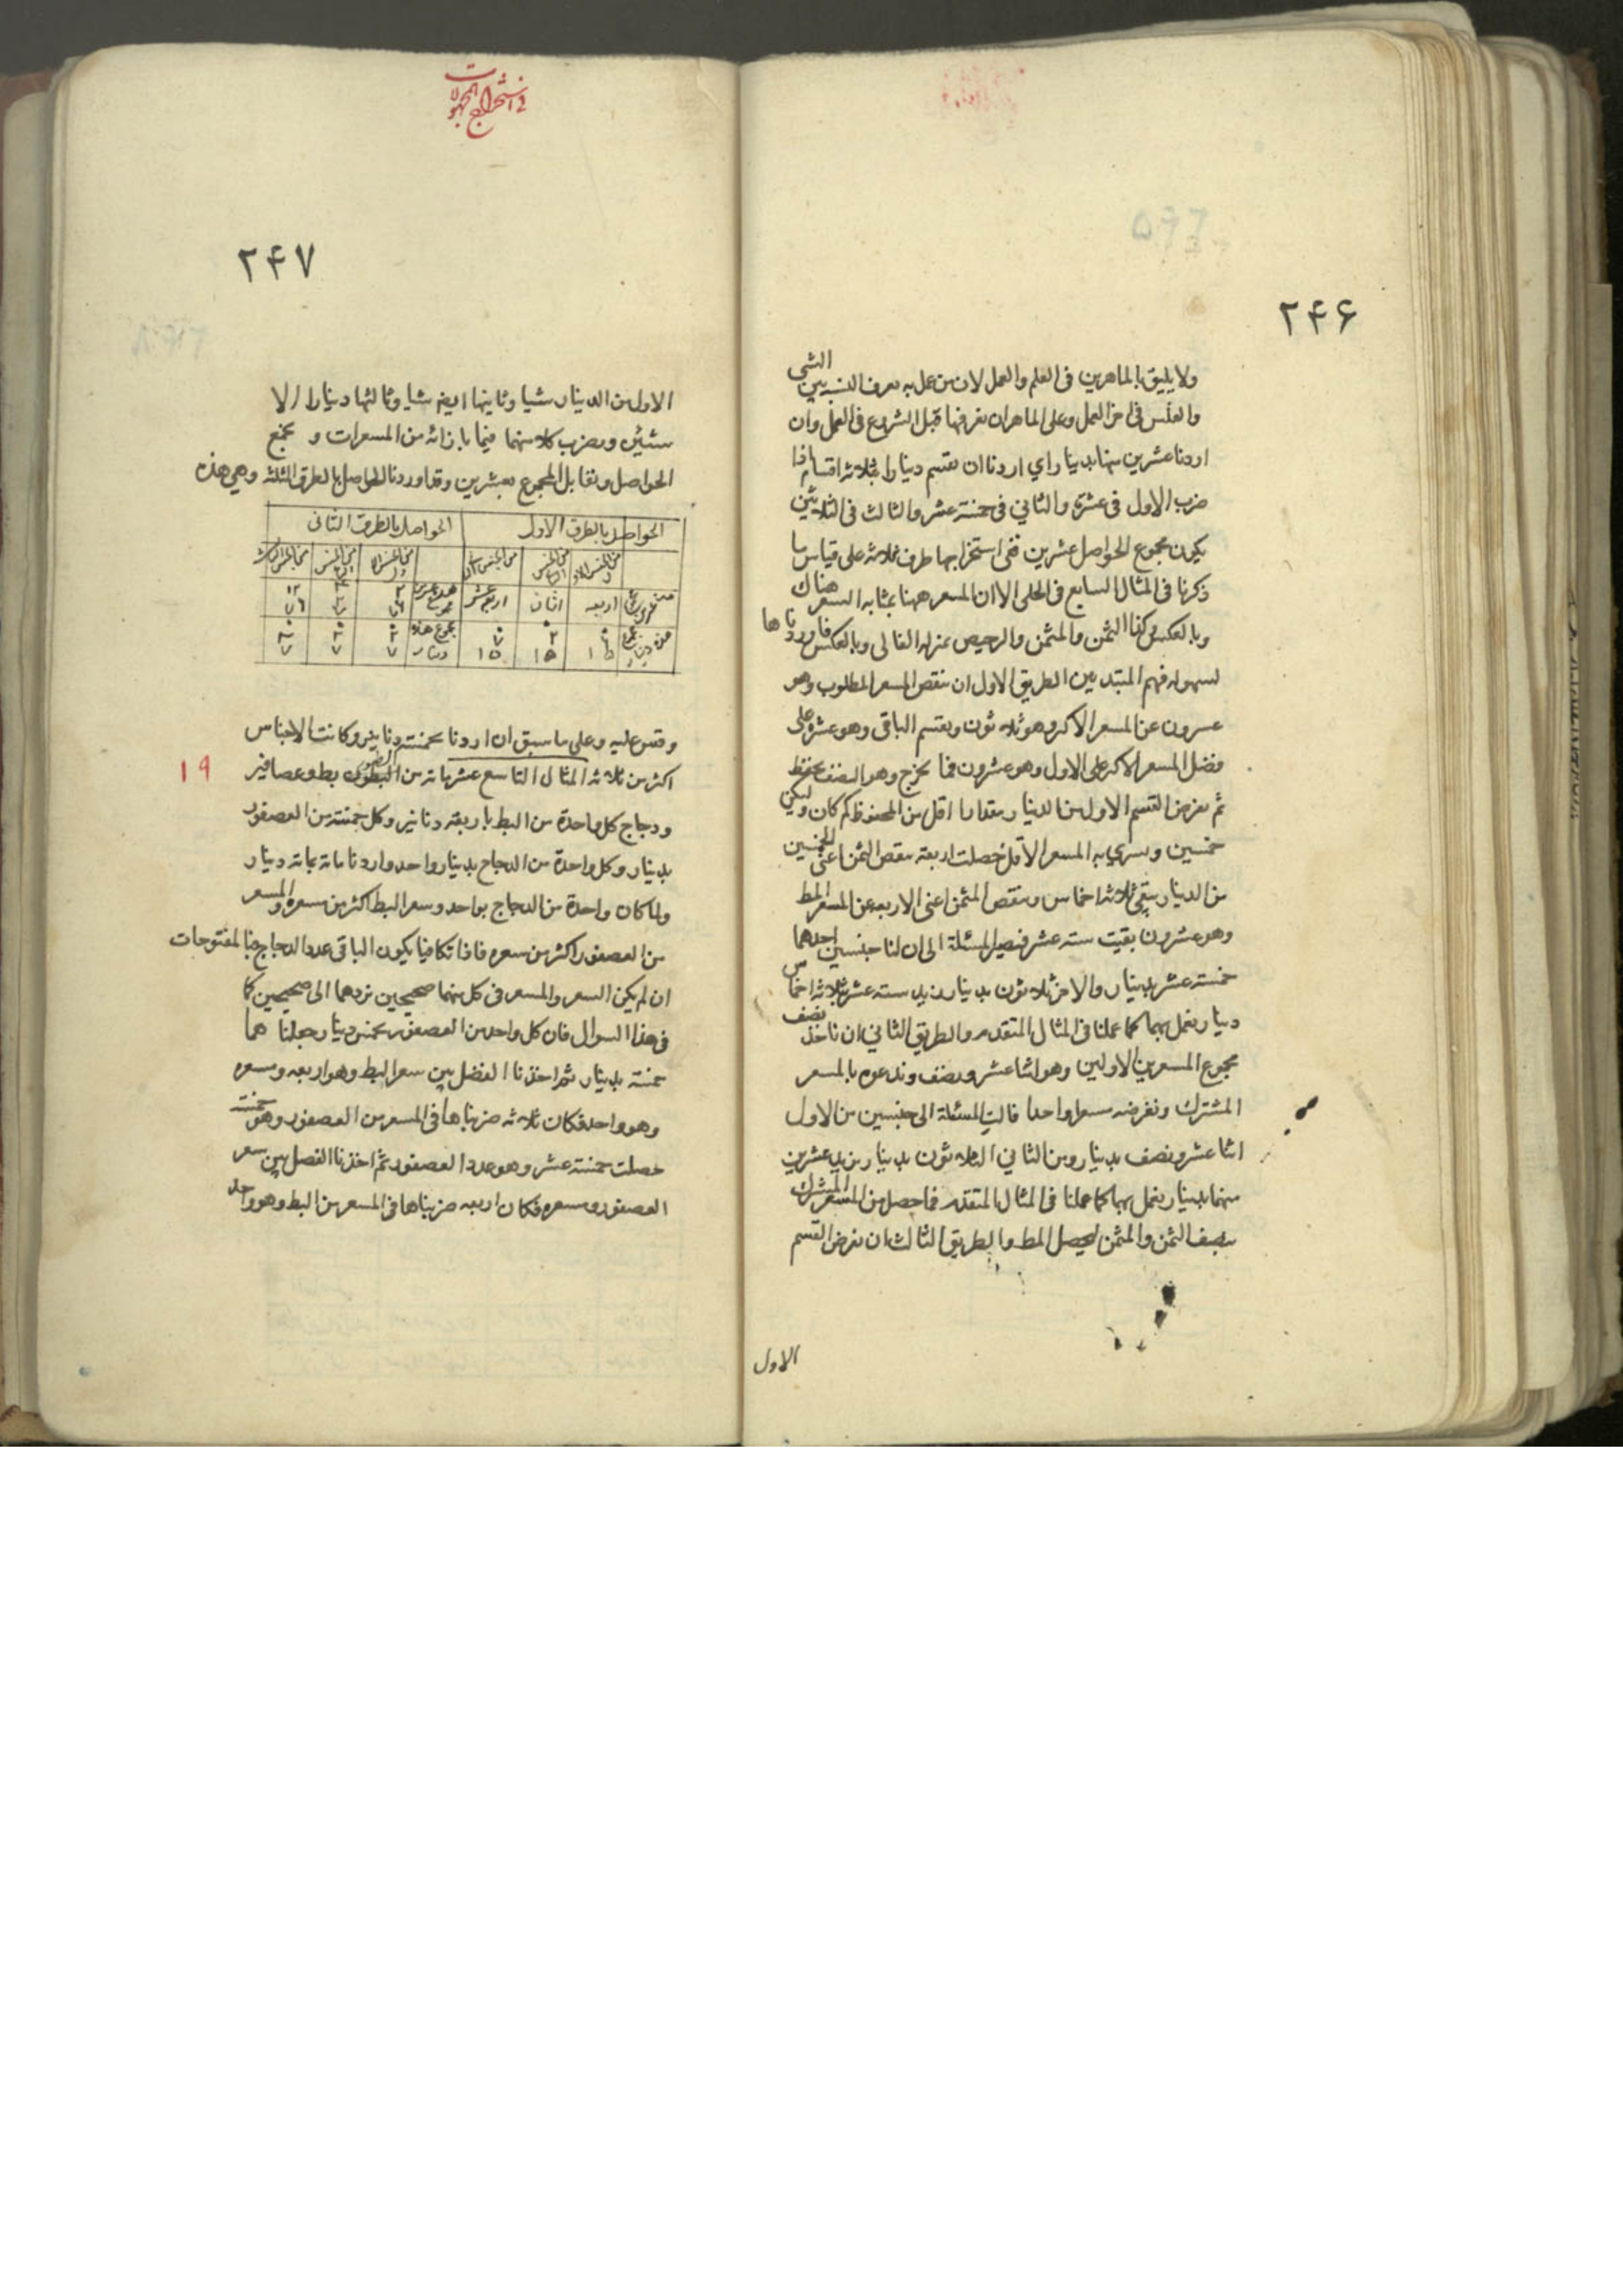 ٢۴۶
ولا يليق بالماهرين فى العلم والعمل لان من عمل به يعرف النسبة بين الشى
والفلس فى اخر العمل وعلى الماهر ان يعرفها قبل الشروع فى العمل وان
اردنا عشرين منها بدينار اي اردنا ان نقسم دينارا بثلاثة اقسام اذا
ضرب الاول فى عشرة والثاني فى خمسة عشر والثالث فى الثلاثين
يكون مجموع الحواصل عشرين ففى استخراجها طرق ثلاثة على قياس ما
ذكرنا فى المثال السابع فى الحلى الا ان المسعر ههنا بمثابه السعر هناك
وبالعكس وكذا الثمن والمثمن والرخيص بمنزله الغالى وبالعكس فاوردناها
لسهوله فهم المبتدئين الطريق الاول ان ننقص المسعر المطلوب وهو
عشرون عن المسعر الاكثر وهو ثلاثون ونقسم الباقى وهو عشرة على
فضل المسعر الاكثر على الاول وهو عشرون فما يخرج وهو النصف نحفظه
ثم نفرض القسم الاول من الدينار مقدارا اقل من المحفوظ كم كان وليكن
خمسين ونشري به المسعر الاقل حصلت اربعة ننقص الثمن اعنى الخمسين
من الدينار يبقى ثلاثة اخماس وننقص المثمن اعنى الاربعه عن المسعر المط
وهو عشرون بقيت ستة عشر فتصير المسئلة الى ان لنا جنسين احدهما
خمسة عشر بدينار والاخر ثلاثون بدينار نريد ستة عشر بثلاثة اخماس
دينار نعمل بهما كما عملنا فى المثال المتقدم والطريق الثاني ان ناخذ نصف
مجموع المسعرين الاولين وهو اثنا عشر ونصف وندعوه بالمسعر
المشترك ونفرضه مسعرا واحدا فالت المسئلة الى جنسين من الاول
اثنا عشر ونصف بدينار ومن الثاني الثلاثون بدينار نريد عشرين
منها بدينار نعمل بهما كما عملنا فى المثال المتقدم فما حصل من المسعر المشترك
ننصف الثمن والمثمن ليحصل المط والطريق الثالث ان نفرض القسم
الاول
فى استخراج المجهولات
٢۴٧
الاول من الدينار شيا وثانيها ايضا شيا وثالثها دينارا الا
شيئين ونضرب كلا منهما فيما بازائه من المسعرات و نجمع
الحواصل ونقابل المجموع بعشرين وقد اوردنا الحواصل بالطرق الثلثة وهي هذه
الحواصل بالطرق الاول الحواصل بالطرق الثانى
اربعه اثنان اربعة عشر
وقس عليه وعلى ما سبق ان اردنا بخمسة دنانير وكانت الاجناس
١٩
اكثر من ثلاثة المثال التاسع عشر مائة من الطيور بط وعصافير
ودجاج كل واحدة من البط باربعة دنانير وكل خمسة من العصفور
بدينار وكل واحدة من الدجاج بدينار واحد واردنا مائة بمائة دينار
ولما كان واحدة من الدجاج بواحد وسعر البط اكثر من مسعره والمسعر
من العصفور اكثر من سعره فاذا تكافيا يكون الباقى عدد الدجاج
ان لم يكن السعر والمسعر فى كل منهما صحيحين نردهما الى صحيحين كما
فى هذا السوال فان كل واحد من العصفور بخمس دينار جعلنا هما
خمسة بدينار ثم اخذنا الفضل بين سعر البط وهو اربعه ومسعره
وهو واحد فكان ثلاثه ضربناها فى المسعر من العصفور وهو خمسة
حصلت خمسة عشر وهو عدد العصفور ثم اخذنا الفضل بين سعر
العصفور ومسعره فكان اربعه ضربناها فى المسعر من البط وهو واحد